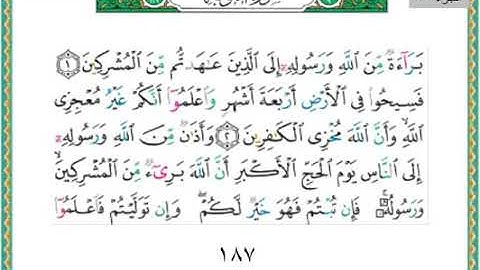 بَرَآءَةٌ مِّنَ ٱللَّهِ وَرَسُولِهِۦٓ إِلَى ٱلَّذِينَ عَـٰهَدتُّم مِّنَ ٱلْمُشْرِكِينَ ١
فَسِيحُوا۟ فِى ٱلْأَرْضِ أَرْبَعَةَ أَشْهُرٍ وَٱعْلَمُوٓا۟ أَنَّكُمْ غَيْرُ مُعْجِزِى
ٱللَّهِ ۙ وَأَنَّ ٱللَّهَ مُخْزِى ٱلْكَـٰفِرِينَ ٢ وَأَذَٰنٌ مِّنَ ٱللَّهِ وَرَسُولِهِۦٓ
إِلَى ٱلنَّاسِ يَوْمَ ٱلْحَجِّ ٱلْأَكْبَرِ أَنَّ ٱللَّهَ بَرِىٓءٌ مِّنَ ٱلْمُشْرِكِينَ ۙ
وَرَسُولُهُۥ ۚ فَإِن تُبْتُمْ فَهُوَ خَيْرٌ لَّكُمْ ۖ وَإِن تَوَلَّيْتُمْ فَٱعْلَمُوٓا۟
١٨٧